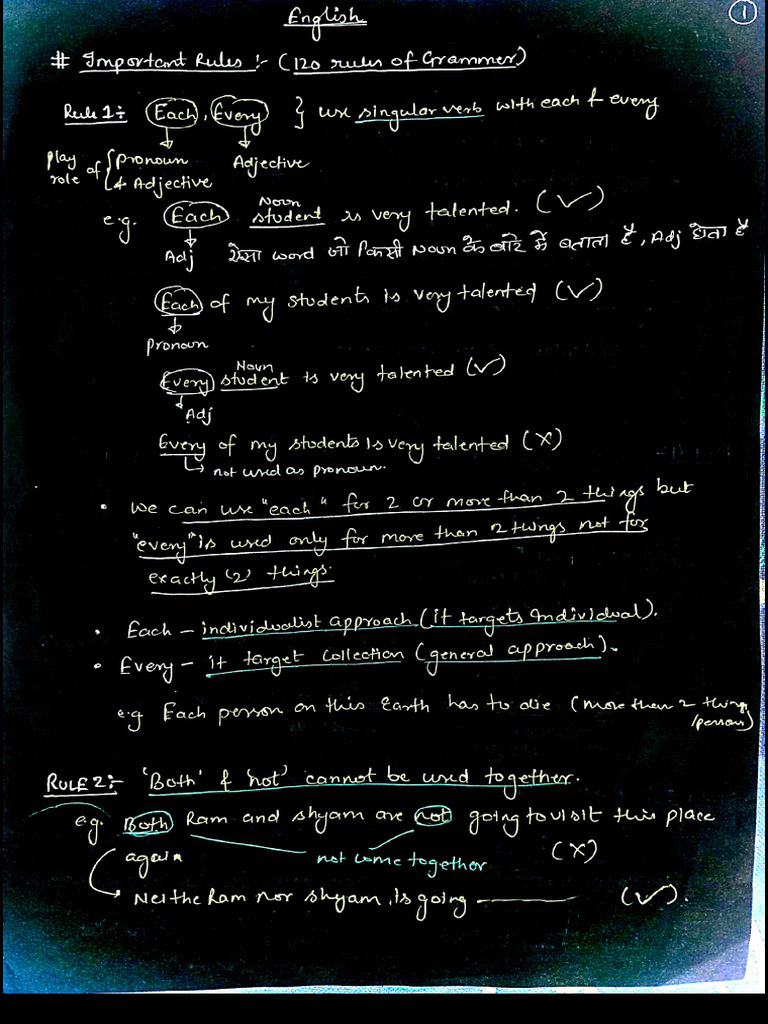 English
1
# Important Rules :- (120 rules of Grammer)
Rule 1 :- Each, Every } use singular verb with each & every
play role of { pronoun & Adjective
Adjective
Noun
e.g. Each student is very talented. (✓)
Adj ऐसा word जो किसी Noun के बारे में बताता है, Adj होता है
Each of my students is very talented (✓)
pronoun
Noun
Every student is very talented (✓)
Adj
Every of my students is very talented (X)
not used as pronoun.
• We can use "each" for 2 or more than 2 things but
"every" is used only for more than 2 things not for
exactly '2' things.
• Each - individualist approach (it targets individual).
• Every - it target collection (general approach).
e.g Each person on this Earth has to die (more than 2 things
/person)
RULE 2 :- 'Both' & 'not' cannot be used together.
e.g. Both Ram and shyam are not going to visit this place
again
not come together
(X)
Neithe Ram nor shyam, is going ——— (✓).